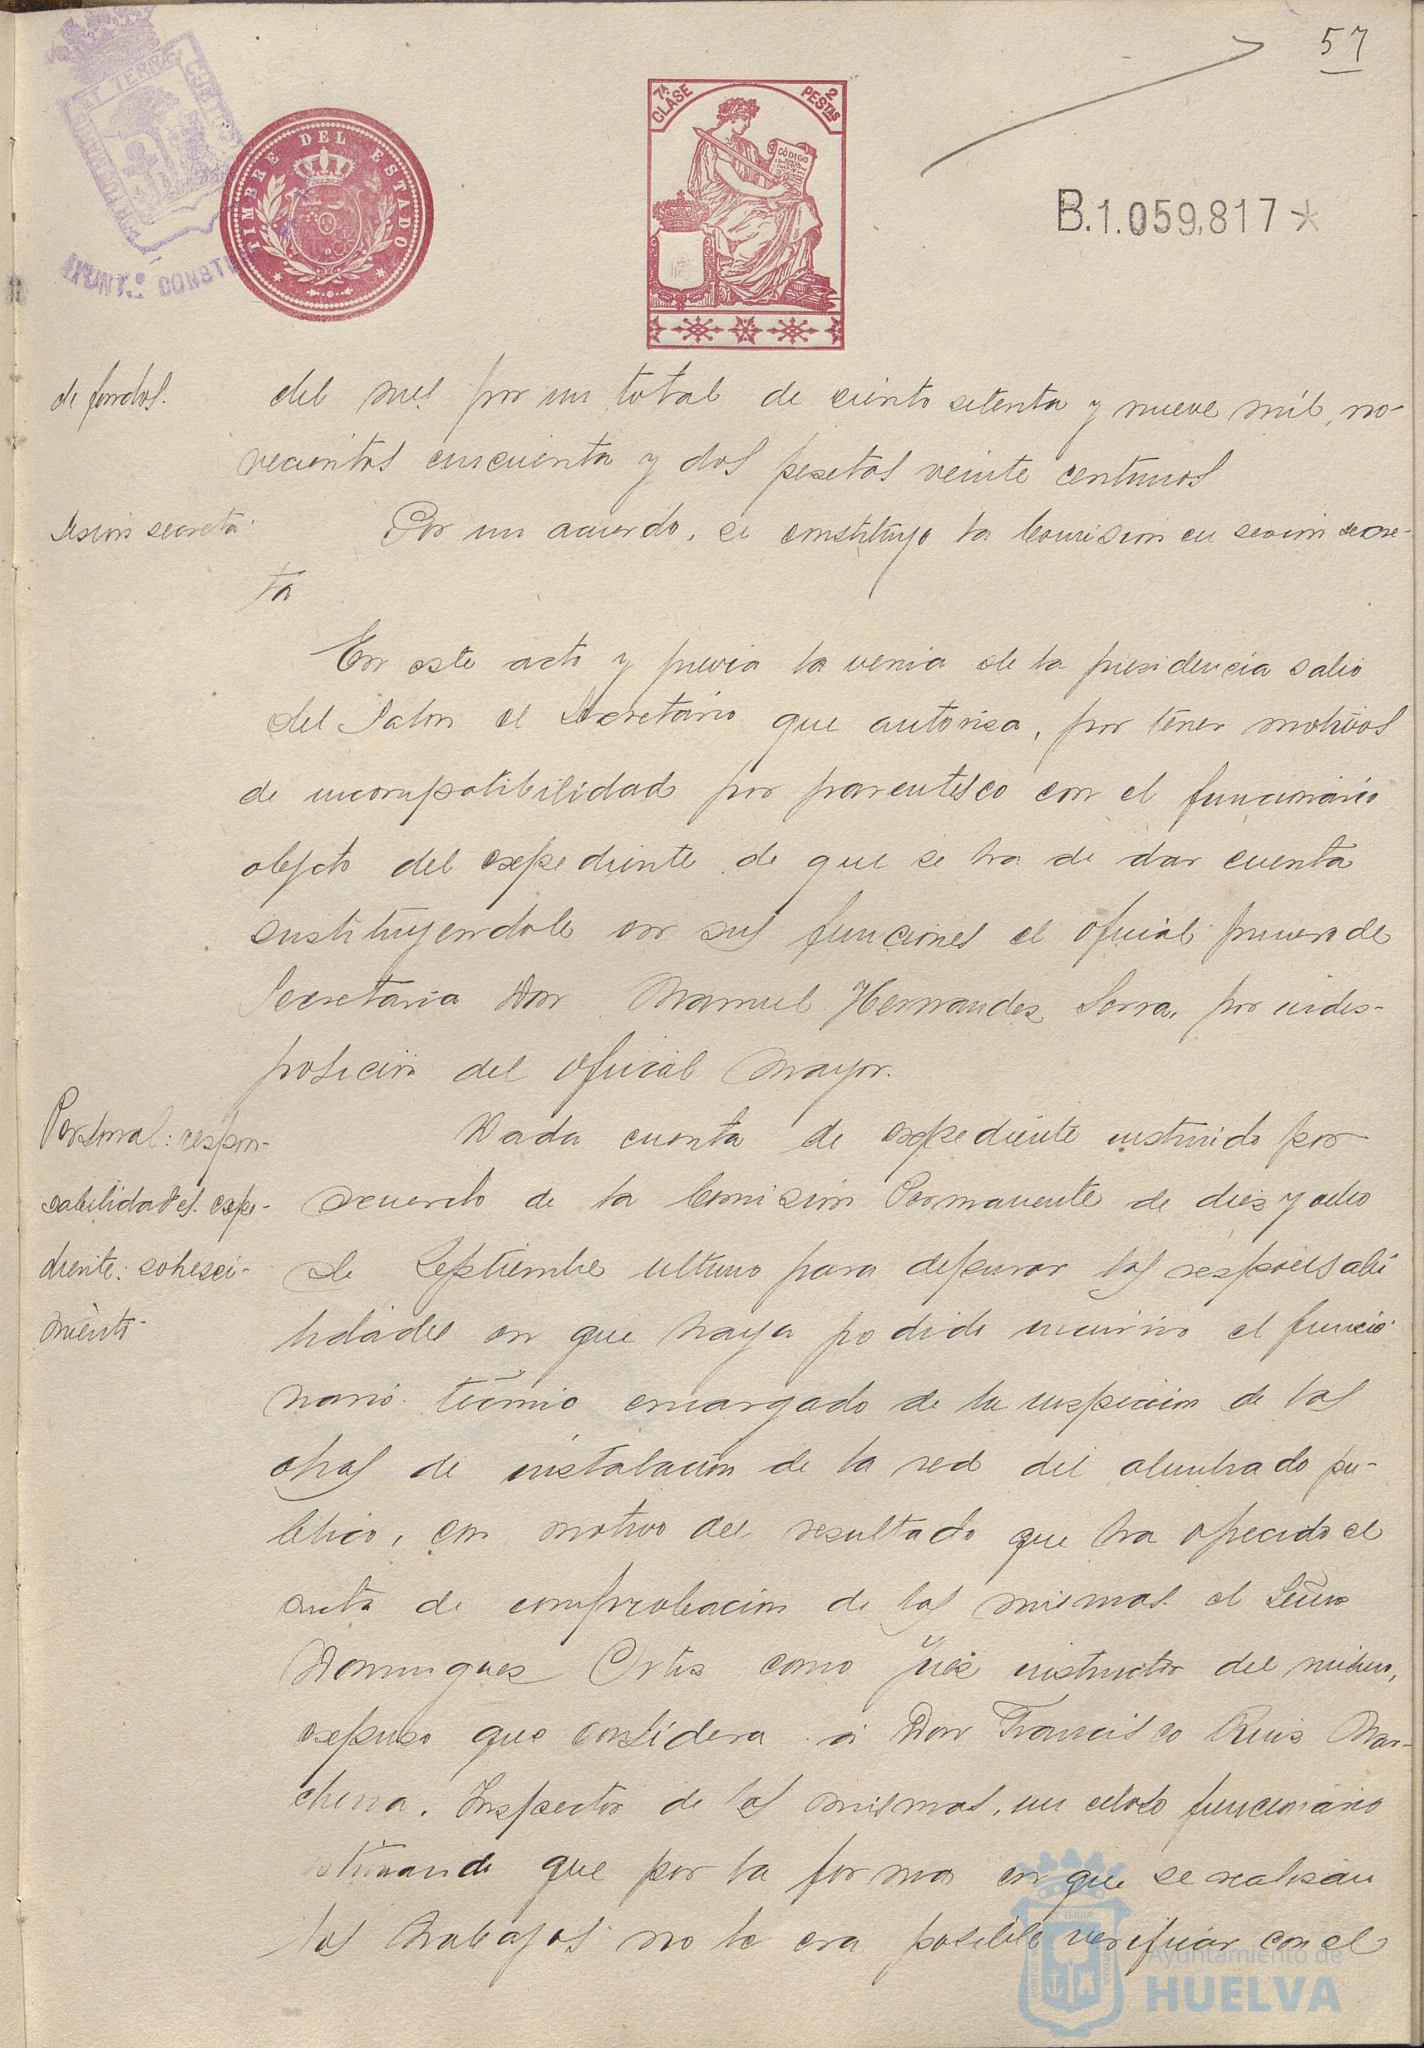 57
TIMBRE DEL ESTADO
7ª CLASE
2 PESTAS
CÓDIGO
B.1.059,817*
AYUNT.º CONST
de fondos.
del mes por un total de ciento setenta y nueve mil, no-
vecientas cincuenta y dos pesetas veinte centimos
Sesion secreta.
Por un acuerdo, se constituyo la Comision en sesion secre-
ta
En este acto y previa la venia de la presidencia salio
del Salon el Secretario que autoriza, por tener motivos
de incompatibilidad por parentesco con el funcionario
objeto del expediente de que se ha de dar cuenta
sustituyendole en sus funciones el oficial primero de
Secretaria Don Manuel Hernandez Serra, por indis-
posicion del Oficial Mayor.
Personal: respon-
sabilidades. expe-
diente: sobresei-
miento-
Dada cuenta de expediente instruido por
acuerdo de la Comisión Permanente de diez y ocho
de Septiembre ultimo para depurar las responsabi
lidades en que haya podido incurrir el funcio
nario tecnico encargado de la inspeccion de las
obras de instalacion de la red del alumbrado pu-
blico, con motivo del resultado que ha ofrecido el
acta de comprobacion de las mismas. el Señor
Dominguez Ortiz como Juez instructor del mismo,
expuso que considera a Don Francisco Ruiz Mar-
chena, Inspector de las mismas, un celoso funcionario
estimando que por la forma en que se realizan
los trabajos no le era posible verificar con el
Ayuntamiento de
HUELVA